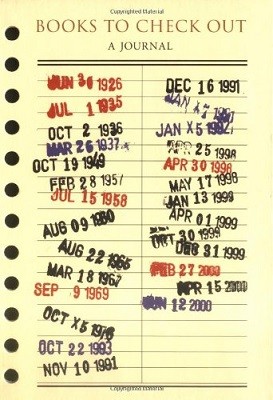 Copyrighted Material
BOOKS TO CHECK OUT
A JOURNAL
JUN 3 1926
JUL 1 1935
OCT 2 1936
MAR 26 1937
OCT 19 1949
FEB 28 1957
JUL 15 1958
AUG 09 1960
AUG 22 1965
MAR 18 1967
SEP 9 1969
OCT X5 1976
OCT 22 1993
NOV 10 1991
DEC 16 1991
JAN
JAN X5 1992
APR 25 1998
APR 30 1998
MAY 17 1998
JAN 13 1999
APR 01 1999
OCT 30 1999
DEC 31 1999
FEB 27 2000
APR 15 2000
JUN 12 2000
Copyrighted Material